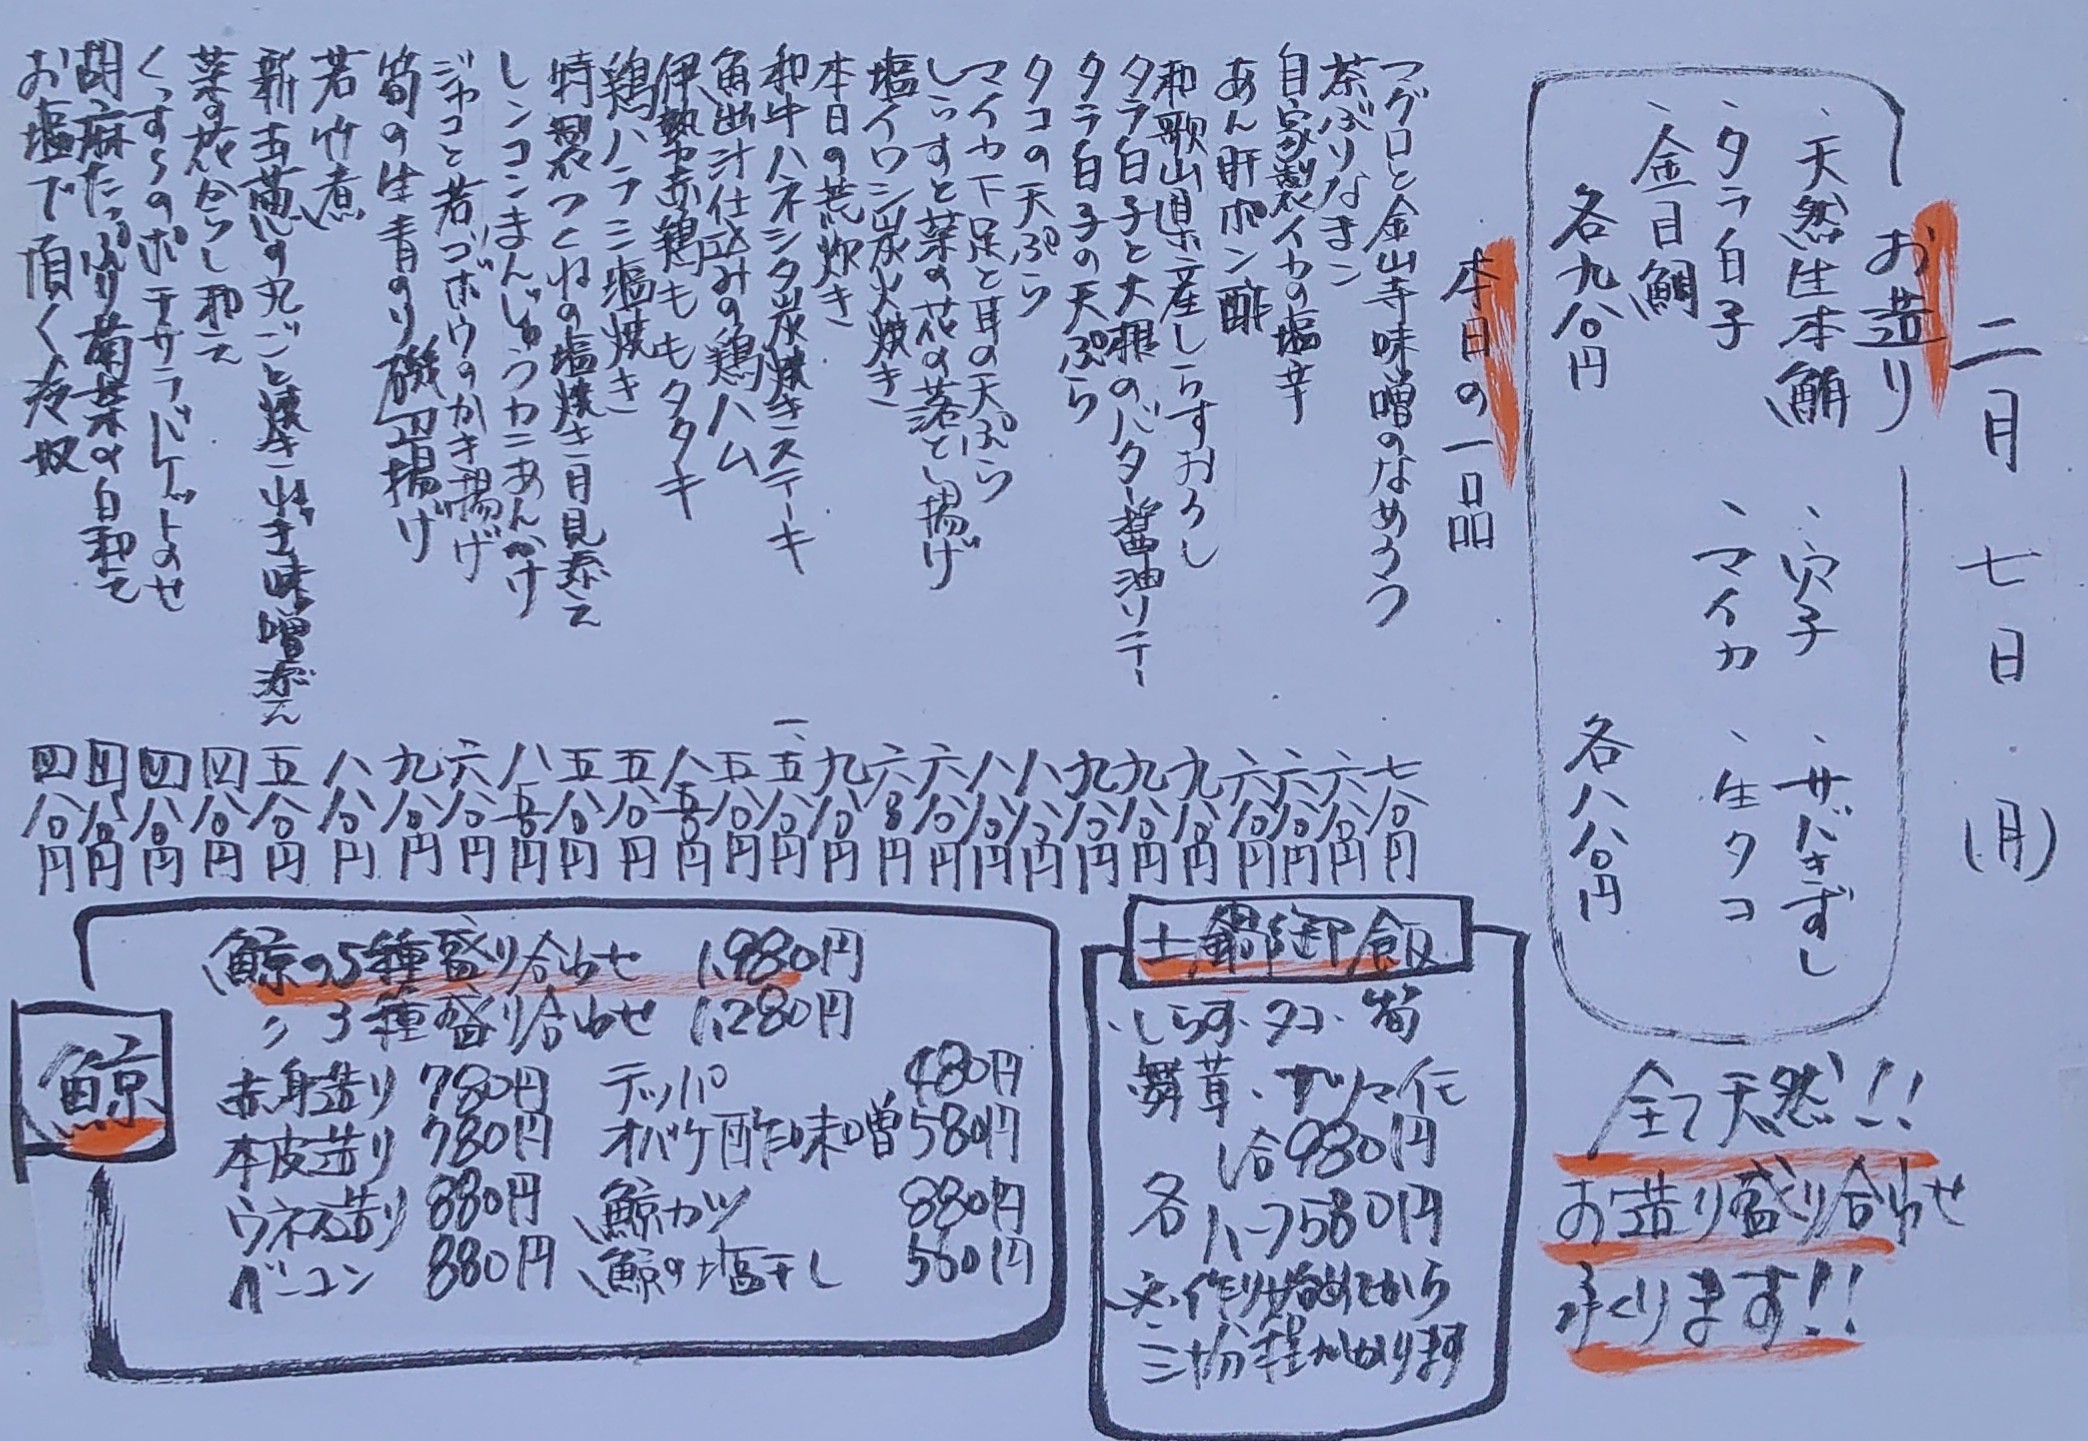 二月七日(月)
お造り
、天然生本鮪 、穴子 、サバきずし
、タラ白子 、マイカ 、生タコ
、金目鯛
各九八〇円 各八八〇円
全て天然!!
お造り盛り合わせ
承ります!!
本日の一品
マグロと金山寺味噌のなめろう 七八〇円
茶ぶりなまこ 六八〇円
自家製イカの塩辛 六八〇円
あん肝ポン酢 六八〇円
和歌山県産しらすおろし 九八〇円
タラ白子と大根のバター醤油ソテー 九八〇円
タラ白子の天ぷら 九八〇円
タコの天ぷら 八八〇円
マイカ下足と耳の天ぷら 八八〇円
しらすと菜の花の落とし揚げ 六八〇円
塩イワシ炭火焼き 六八〇円
本日の荒炊き 九八〇円
和牛ハネシタ炭焼きステーキ 一、五八〇円
魚出汁仕込みの鶏ハム 五八〇円
伊勢赤鶏ももタタキ 八五〇円
鶏ハラミ塩焼き 五八〇円
特製つくねの塩焼き月見添え 五八〇円
レンコンまんじゅうカニあんかけ 八五〇円
ジャコと若ゴボウのかき揚げ 六八〇円
筍の生青のり磯辺揚げ 九八〇円
若竹煮 八八〇円
新玉葱の丸ごと焼き ねぎ味噌添え 五八〇円
菜の花からし和え 四八〇円
くんすらのポテサラバゲットのせ 四八〇円
胡麻たっぷり菊菜の白和え 四八〇円
お塩で頂く冷奴 四八〇円
土鍋御飯
・しらす・タコ・筍
舞茸・サツマイモ
各 1合980円
ハーフ580円
※作り始めてから
三十分程かかります
鯨
鯨の5種盛り合わせ 1,980円
〃 3種盛り合わせ 1,280円
赤身造り 780円 テッパ 480円
本皮造り 780円 オバケ酢味噌 580円
ウネス造り 880円 鯨カツ 880円
ベーコン 880円 鯨の塩干し 560円